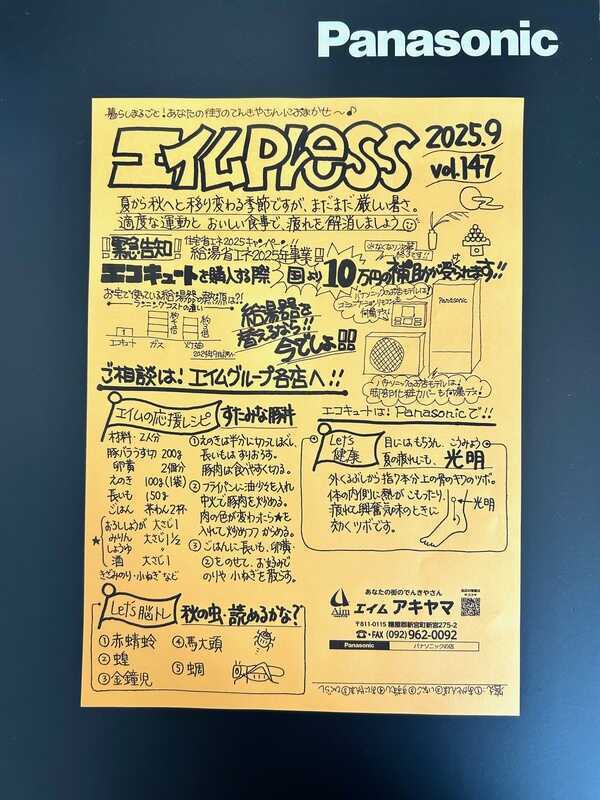 Panasonic
暮らしまるごと!あなたの街のでんきやさんにおまかせ〜♪
エイムPress
2025.9
vol.147
夏から秋へと移り変わる季節ですが、まだまだ厳しい暑さ。
適度な運動とおいしい食事で、疲れを解消しましょう
緊急告知!!
住宅省エネ2025キャンペーン!!
給湯省エネ2025年事業
エコキュートを購入する際 国より10万円の補助が受られます!!
お宅で使っている給湯器の熱源は?!
ランニングコストの違い
エコキュート ガス 灯油
給湯器を
替えるなら!!
今でしょ!!
Panasonic
ご相談は!エイムグループ各店へ!!
エコキュートは!Panasonicで!!
エイムの応援レシピ
すたみな豚丼
材料・2人分
豚バラうす切 200g
卵黄 2個分
えのき 100g(1袋)
長いも 150g
ごはん 茶わん2杯
★
おろししょうが 大さじ1
みりん 大さじ1½
しょうゆ 〃
酒 大さじ1
きざみのり・小ねぎ など
①えのきは半分に切ってほぐし、
長いもはすりおろす。
豚肉は食べやすく切る。
②フライパンに油少々を入れ
中火で豚肉を炒める。
肉の色が変わったら★を
入れて炒めフタからめる。
③ごはんに長いも、卵黄・
②をのせて、お好みで
のりや小ねぎを散らす。
Let's
健康
目にはもちろん、こうみょう
夏の疲れにも、光明
外くるぶしから指7本分上の骨のキワのツボ。
体の内側に熱がこもったり、
疲れて興奮気味のときに
効くツボです。
光明
Let's脳トレ
秋の虫・読めるかな?
①赤蜻蛉
②蝗
③金鐘児
④馬大頭
⑤蜩
あなたの街のでんきやさん
Aim
エイム アキヤマ
〒811-0115 糟屋郡新宮町新宮275-2
☎・FAX (092)962-0092
Panasonic パナソニックの店